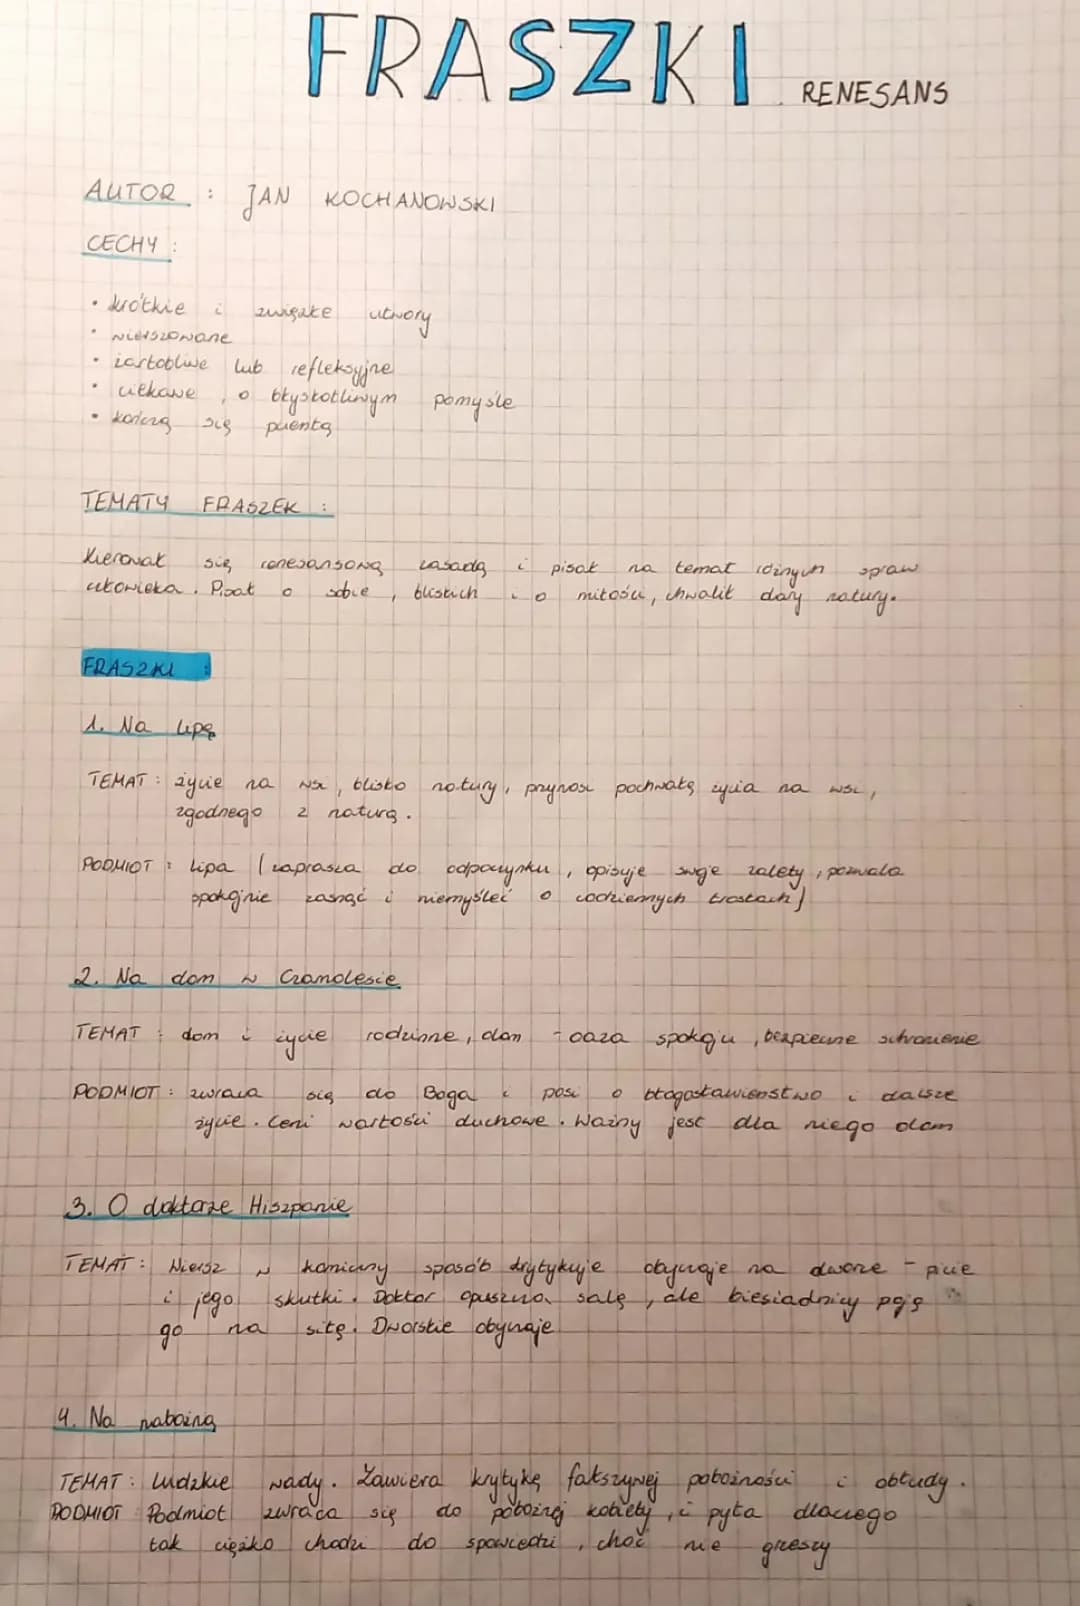 FRASZKI RENESANS
AUTOR : JAN KOCHANOWSKI
CECHY :
• krótkie i zwięzłe utwory
• wierszowane
• żartobliwe lub refleksyjne
• ciekawe, o błyskotliwym pomyśle
• kończą się puentą
TEMATY FRASZEK :
Kierował się renesansową zasadą i pisał na temat różnych spraw
człowieka. Pisał o sobie, bliskich i o miłości, chwalił dary natury.
FRASZKI :
1. Na lipę
TEMAT : życie na wsi, blisko natury, przynosi pochwałę życia na wsi,
zgodnego z naturą.
PODMIOT : lipa (zaprasza do odpoczynku, opisuje swoje zalety, pozwala
spokojnie zasnąć i niemyśleć o codziennych troskach)
2. Na dom w Czarnolesie
TEMAT : dom i życie rodzinne, dom - oaza spokoju, bezpieczne schronienie
PODMIOT : zwraca się do Boga i prosi o błogosławieństwo i dalsze
życie. Ceni wartości duchowe. Ważny jest dla niego dom
3. O doktorze Hiszpanie
TEMAT : Wiersz w komiczny sposób krytykuje obyczaje na dworze - picie
i jego skutki. Doktor opuszcza salę, ale biesiadnicy poją
go na siłę. Dworskie obyczaje
4. Na nabożną
TEMAT : Ludzkie wady. Zawiera krytykę fałszywej pobożności i obłudy.
PODMIOT Podmiot zwraca się do pobożnej kobiety, i pyta dlaczego
tak ciężko chodzi do spowiedzi, choć nie grzeszy